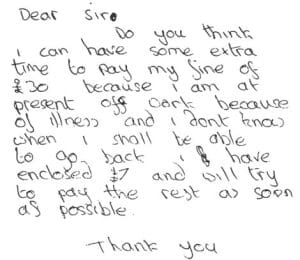 Dear Sir.
Do you think
i can have some extra
time to pay my fine of
£30 because i am at
present off work because
of illness and i dont know
when i shall be able
to go back i have
enclosed £7 and will try
to pay the rest as soon
as possible.
Thank you